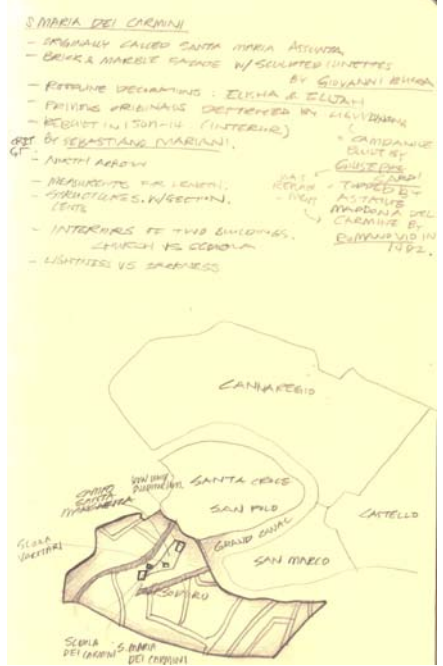 S. MARIA DEI CARMINI
- ORIGINALLY CALLED SANTA MARIA ASSUNTA
- BRICK & MARBLE FACADE W/ SCULPTED LUNETTES
BY GIOVANNI BUORA
- ROOFLINE DECORATIONS: ELISHA & ELIJAH
- ORIGINALS DESTROYED BY LIGHTNING
- REBUILT IN (INTERIOR)
BY SEBASTIANO MARIANI.
- NORTH ARROW
- MEASUREMENTS FOR LENGTH.
- STRUCTURES, W/ SECTION,
- INTERIORS OF TWO BUILDINGS.
CHURCH VS SCUOLA
- LIGHTNESS VS DARKNESS
- CAMPANILE
BUILT BY
GIUSEPPE
SARDI
- TOPPED BY
A STATUE
MADONNA DEL
CARMINE BY
ROMANO VIO IN
1982.
CANNAREGIO
SANTA CROCE
SAN POLO
GRAND CANAL
CASTELLO
SAN MARCO
CAMPO
SANTA
MARGHERITA
AUDITORIUM
SCUOLA
VAROTARI
DORSODURO
SCUOLA
DEI CARMINI
S. MARIA
DEI CARMINI